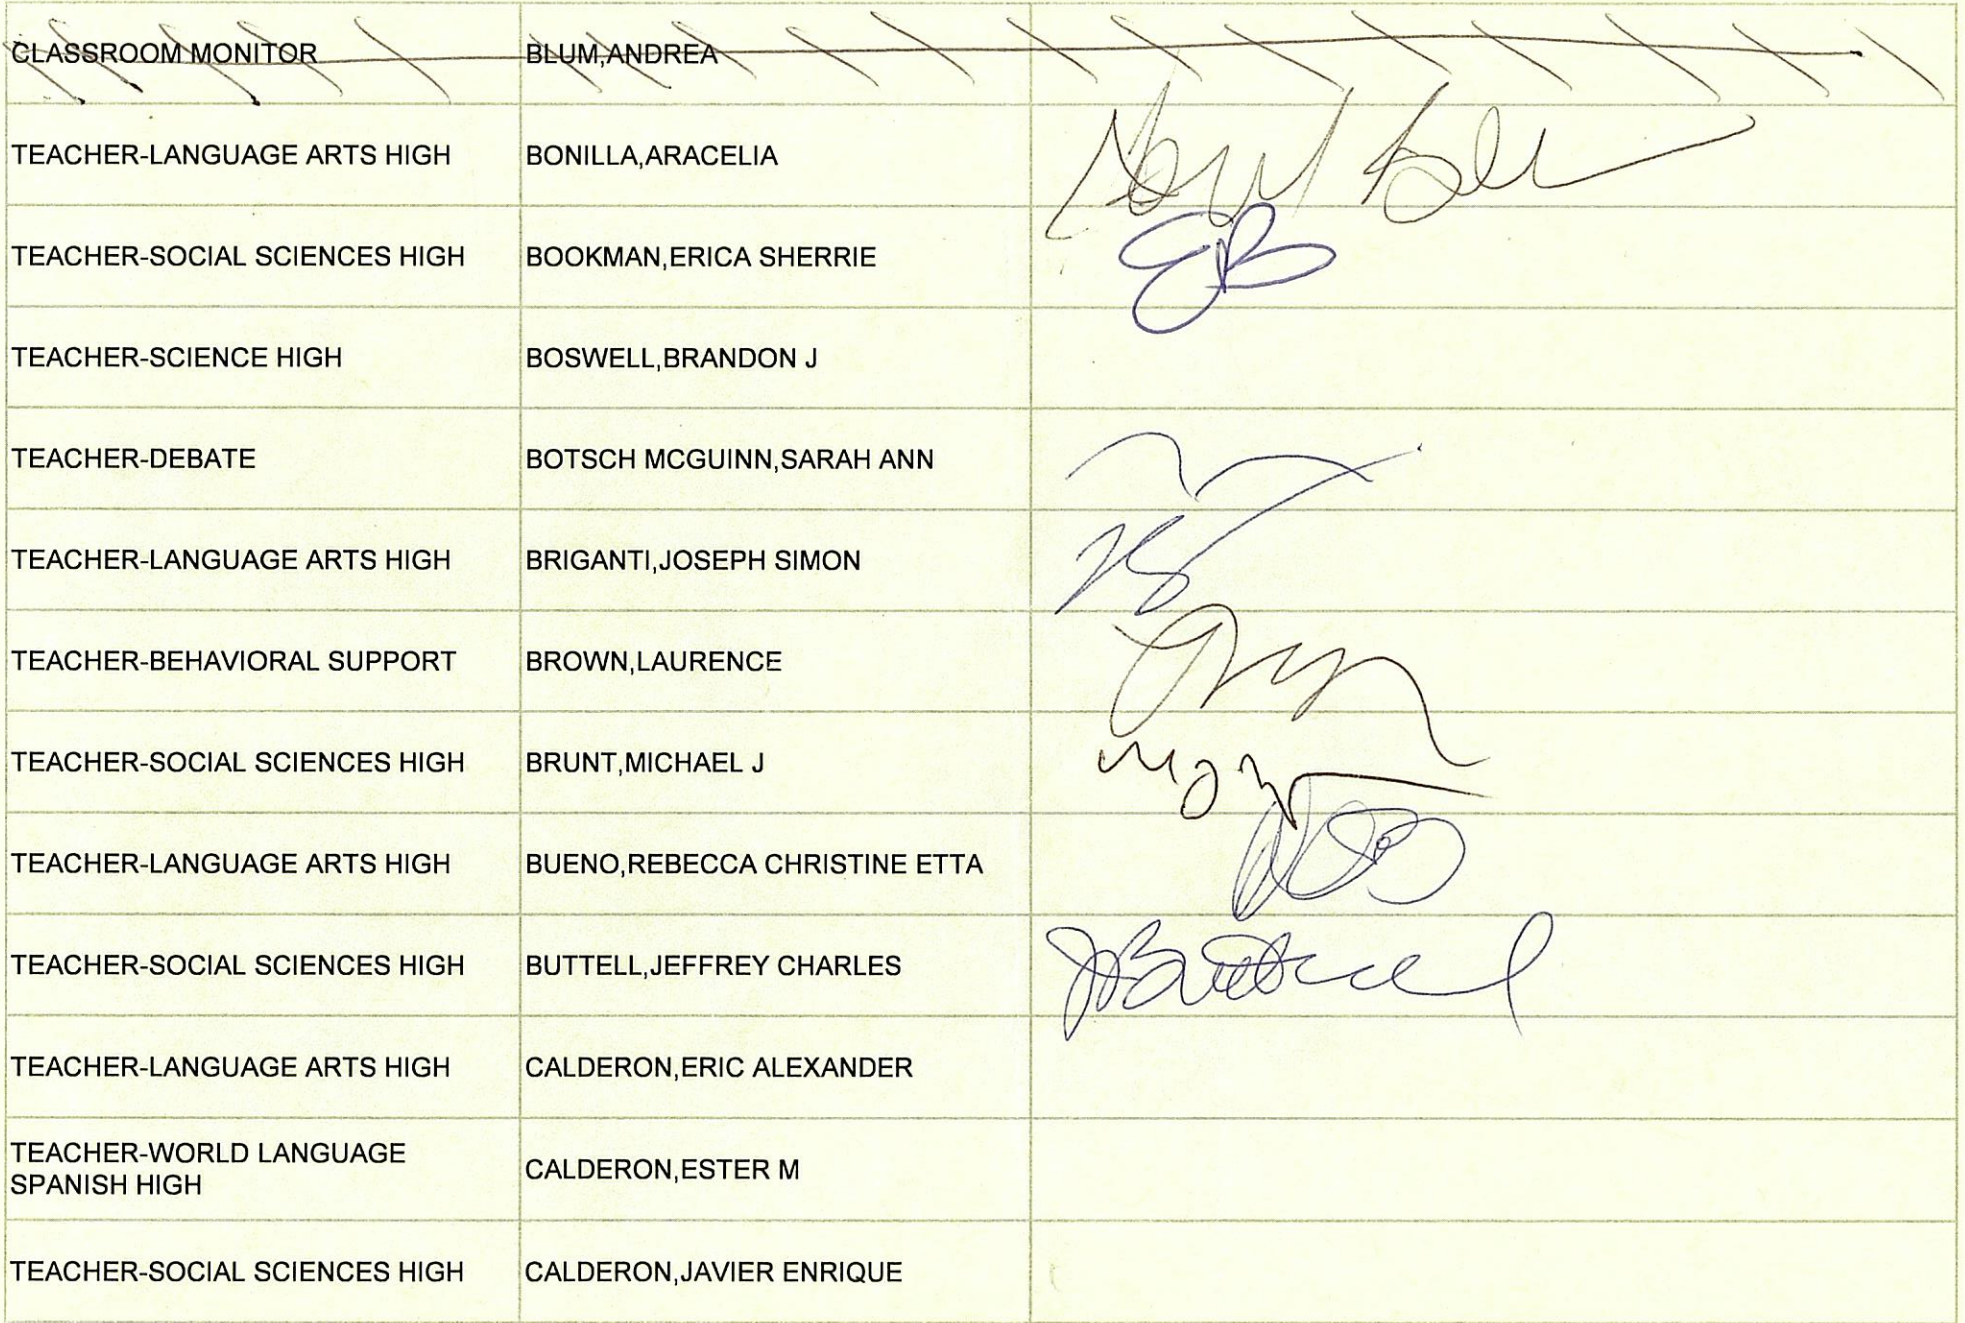 CLASSROOM MONITOR BLUM,ANDREA
TEACHER-LANGUAGE ARTS HIGH BONILLA,ARACELIA
TEACHER-SOCIAL SCIENCES HIGH BOOKMAN,ERICA SHERRIE
TEACHER-SCIENCE HIGH BOSWELL,BRANDON J
TEACHER-DEBATE BOTSCH MCGUINN,SARAH ANN
TEACHER-LANGUAGE ARTS HIGH BRIGANTI,JOSEPH SIMON
TEACHER-BEHAVIORAL SUPPORT BROWN,LAURENCE
TEACHER-SOCIAL SCIENCES HIGH BRUNT,MICHAEL J
TEACHER-LANGUAGE ARTS HIGH BUENO,REBECCA CHRISTINE ETTA
TEACHER-SOCIAL SCIENCES HIGH BUTTELL,JEFFREY CHARLES
TEACHER-LANGUAGE ARTS HIGH CALDERON,ERIC ALEXANDER
TEACHER-WORLD LANGUAGE
SPANISH HIGH CALDERON,ESTER M
TEACHER-SOCIAL SCIENCES HIGH CALDERON,JAVIER ENRIQUE